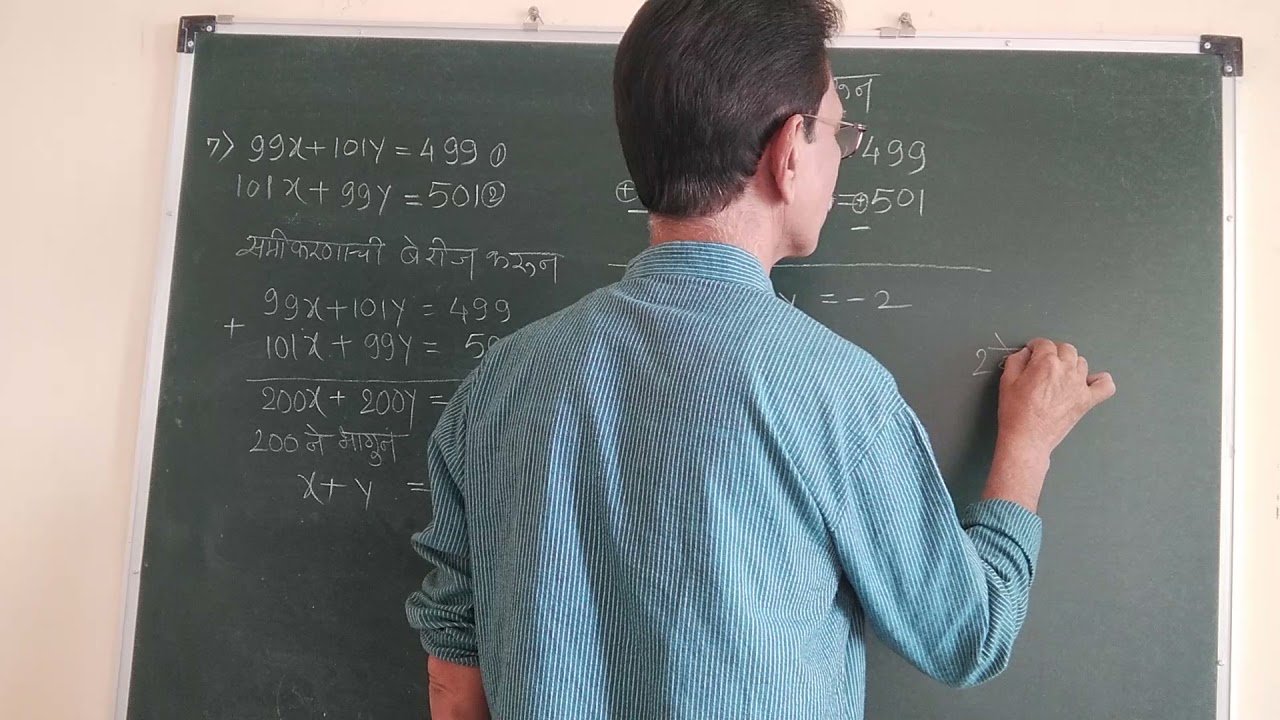 ७) 99x+101y = 499 ①
101x+ 99y = 501②
समीकरणाची बेरीज करून
99x+101y = 499
+ 101x + 99y =
200x+ 200y =
200 ने भागुन
x+y =
499
= ⊕501
y = -2
2 ने